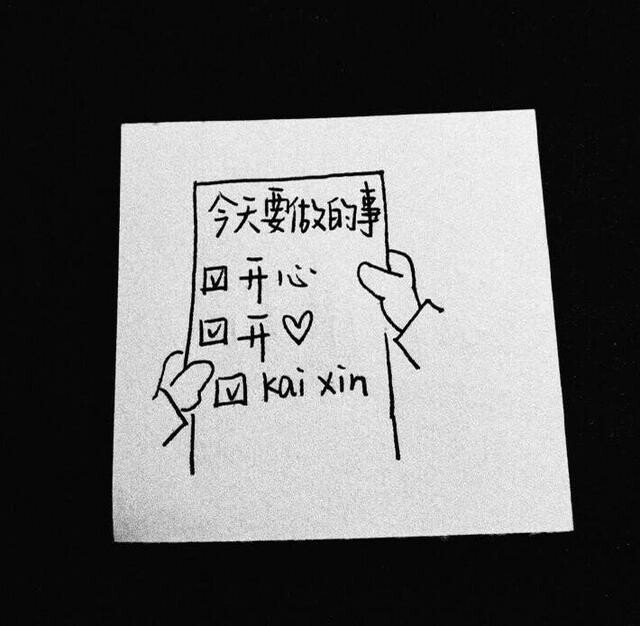 今天要做的事
☑开心
☑开♡
☑kai xin